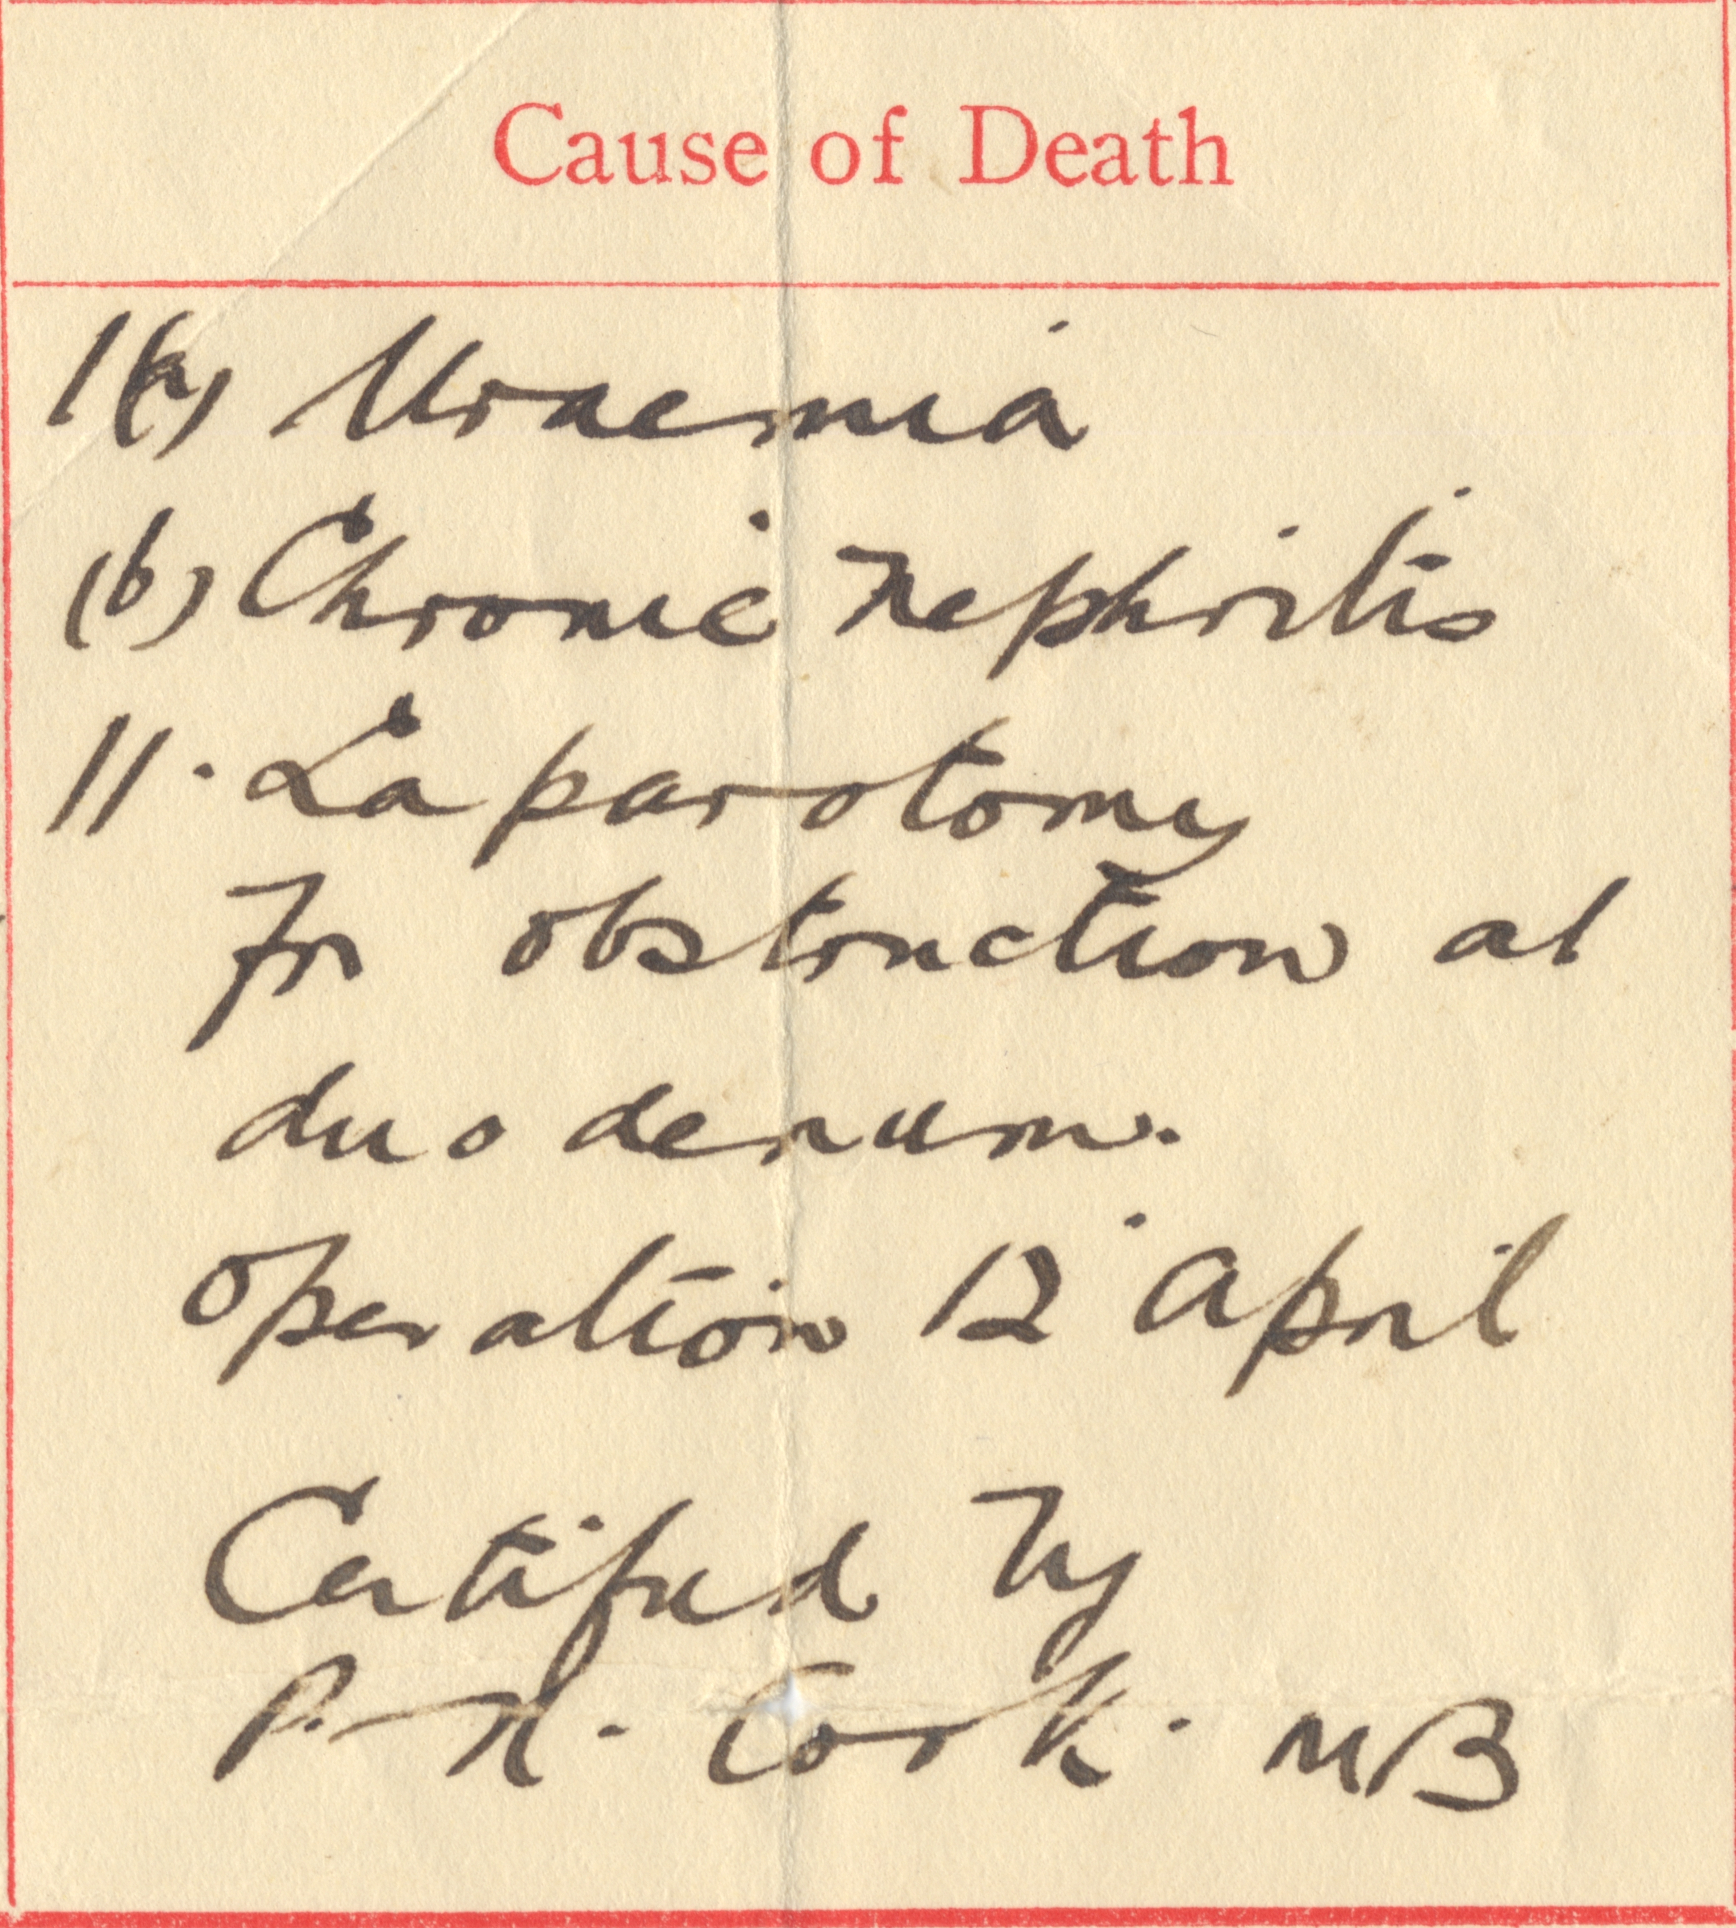 Cause of Death
1(a) Uraemia
(b) Chronic nephritis
11. Laparotomy
for obstruction at
duodenum.
Operation 12 April
Certified by
P. H. Cook. MB